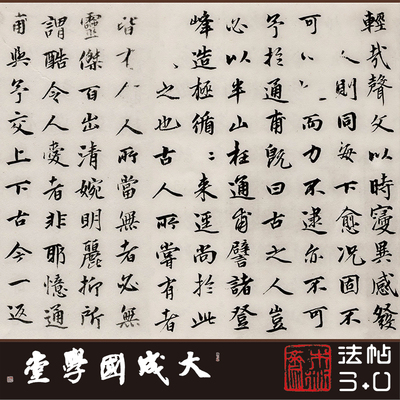 輕哉聲文以時寔異感發
人則同每下愈况固不
可而力不逮亦不可
予於通甫既曰古之人豈
必以半山枉通甫譬諸登
峰造極循〻來逕尚於此
之也古人所嘗有者
皆人所當無者必無
靈傑百出清婉明麗抑所
謂酷令人愛者非耶憶通
甫與予交上下古今一返
大成國學堂
法帖
3.0